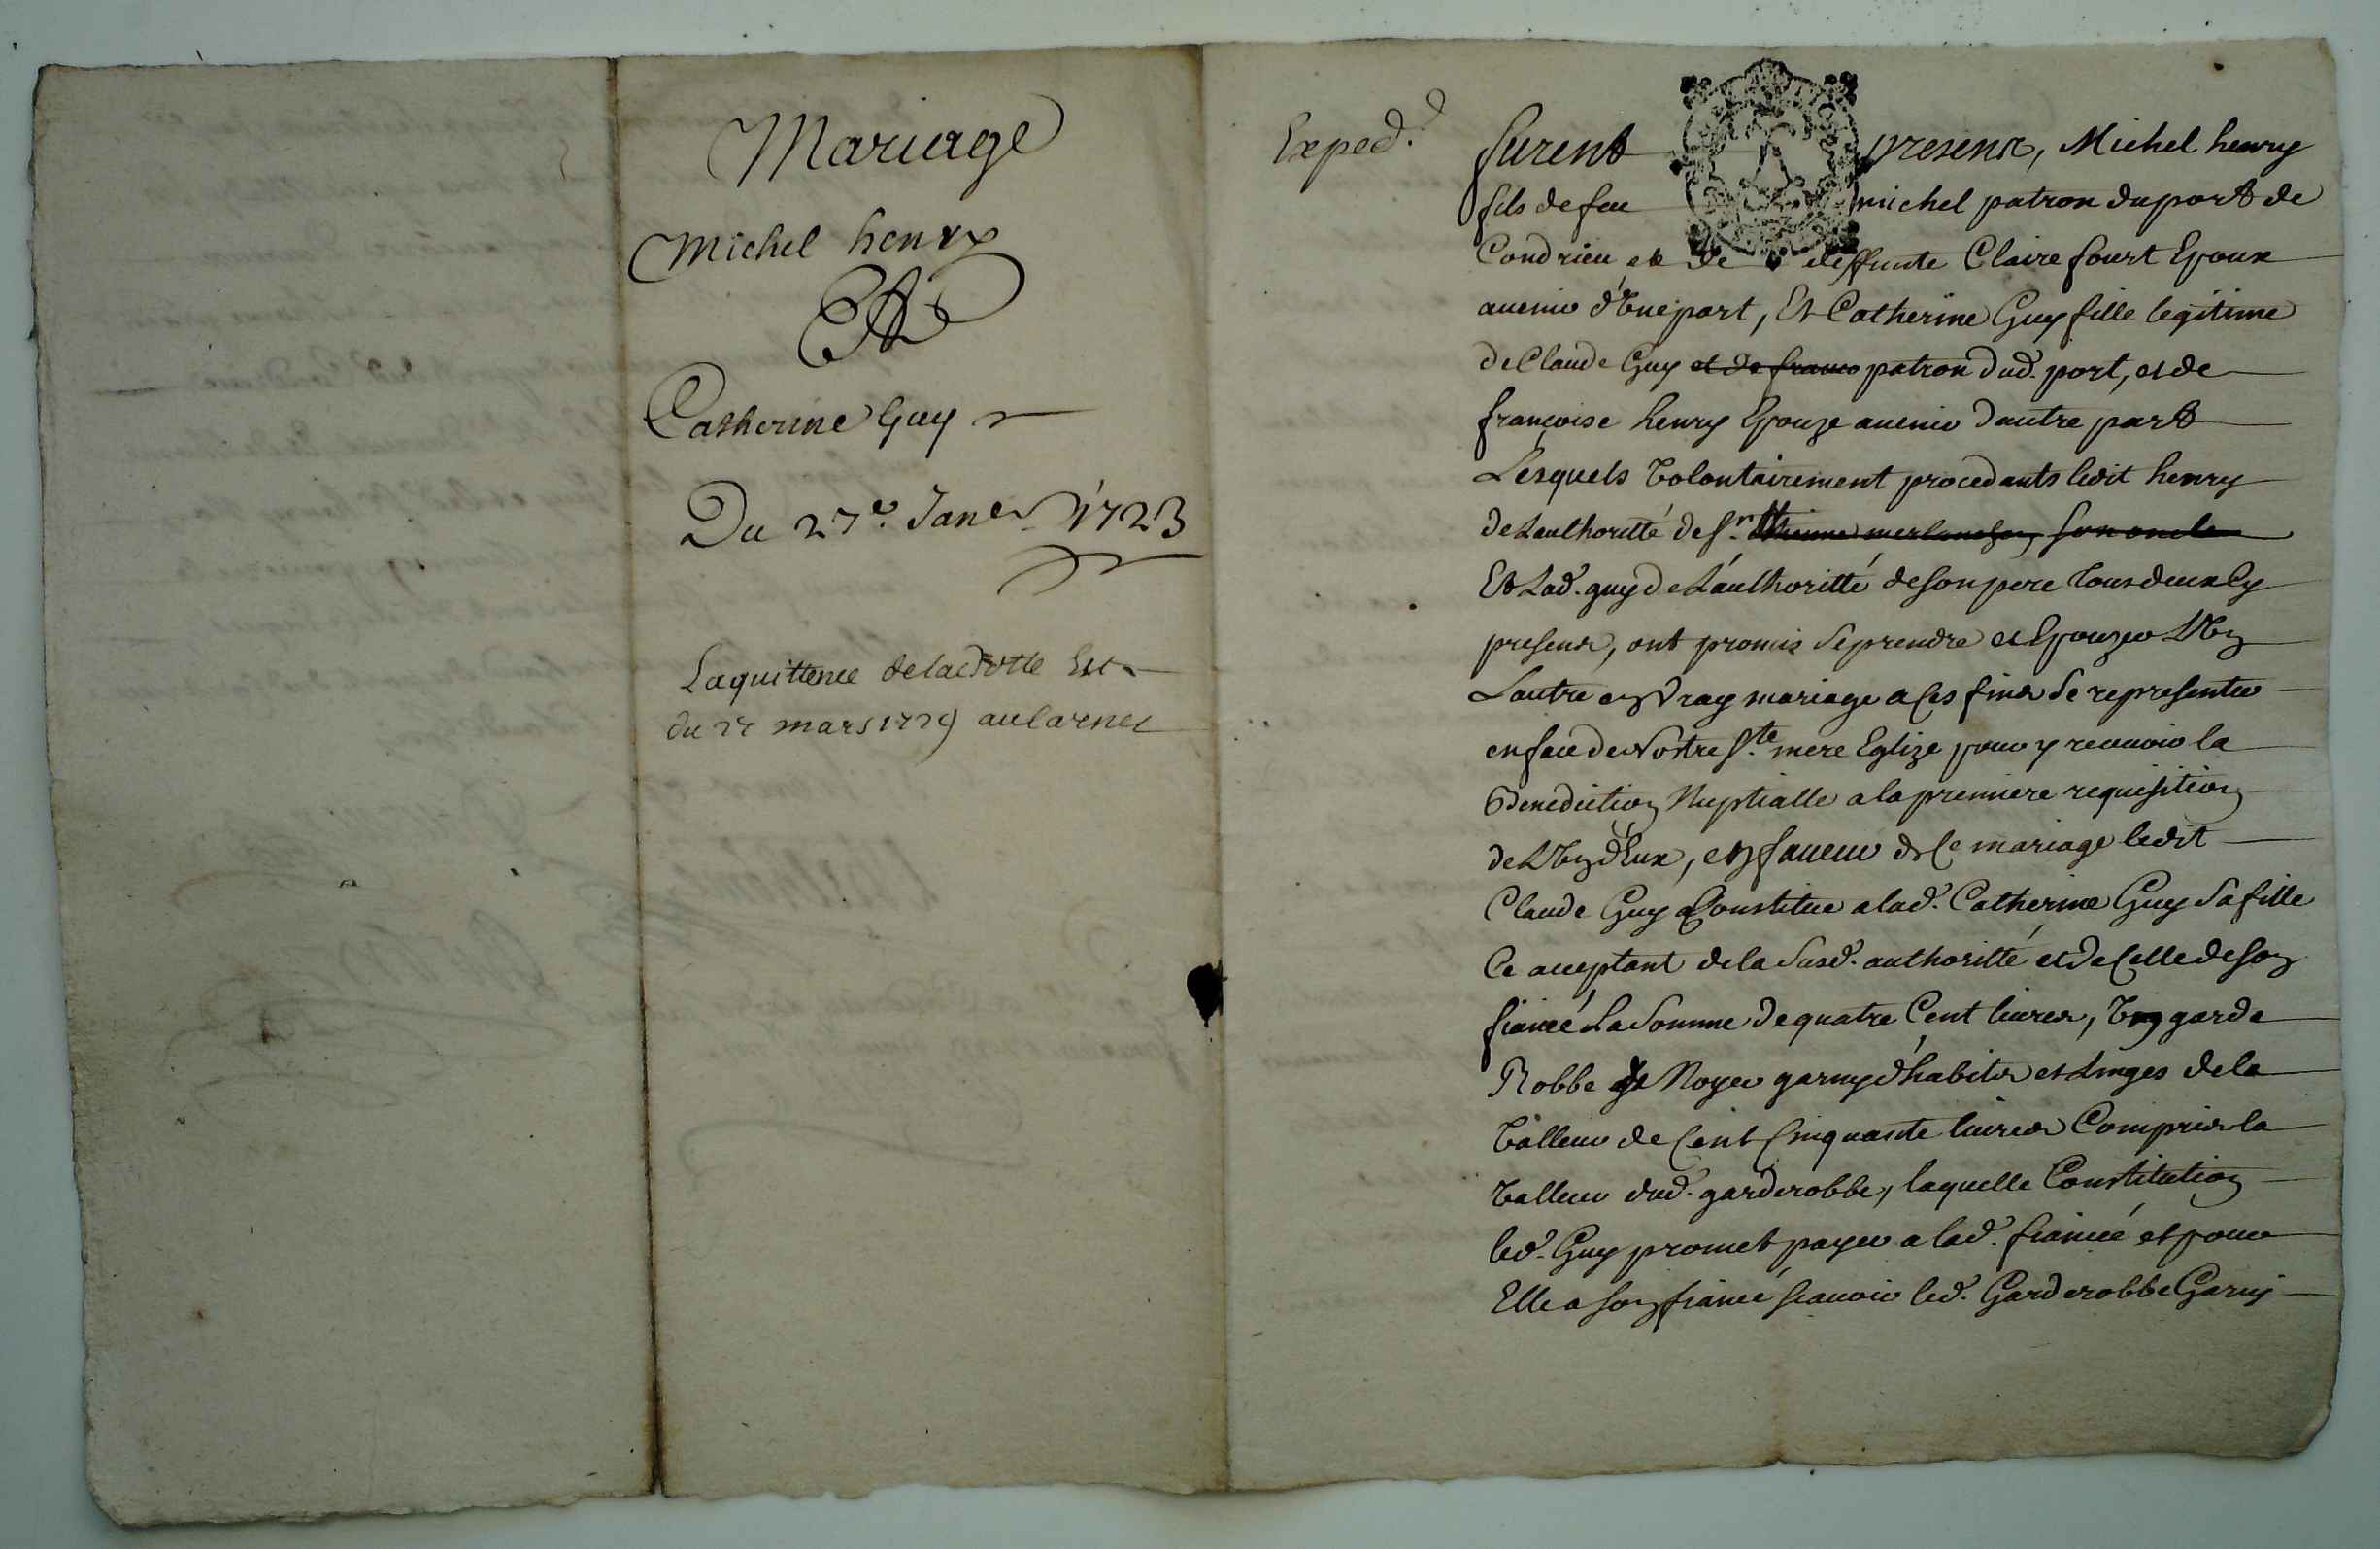 Mariage
Michel henry
Et
Catherine Guy
Du 27e. Janer 1723
Laquittence deladotte Est
du 27 mars 1729 aucarnet
Exped.
furent presens, Michel henry
fils de feu michel patron duport de
Condrieu et de deffunte Claire fourt Epoux
avenir d'Vne part, Et Catherine Guy fille legitime
de Claude Guy et de franco patron dud. port, et de
françoise henry Epouze avenir d'autre part
Lesquels Volontairement procedants ledit henry
de Lauthoritté de sr. Etienne son oncle
Et Lad. guy de L'authoritté de son pere tous deux Cy
presens, ont promis se prendre et Epouzer L'Vn
Lautre en Vray mariage a Ces fins se representer
en face de Nostre ste. mere Eglize pour y recevoir la
Benediction Nuptialle a la premiere requisition
de L'Vn d'Eux, en faveur de Ce mariage ledit
Claude Guy a Constitue a lad. Catherine Guy sa fille
Ce aceptant de la susd. authoritté et de Celle de son
fiancé La somme de quatre Cent livres, Vn garde
Robbe de Noyer garny d'habits et Linges de la
Valleur de Cent Cinquante livres Compris la
Valleur dud. garderobbe, laquelle Constitution
led. Guy promet payer a lad. fiancée et pour
Elle a son fiancé scavoir led. Garderobbe Garny